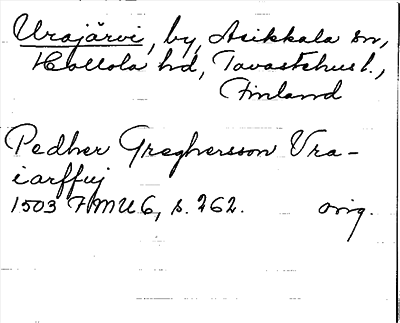 Urajärvi, by, Asikkala sn,
Hollola hd, Tavastehus l.,
Finland
Pedher Greghersson Vra-
iarffuj
1503 FMU 6, s. 262. orig.